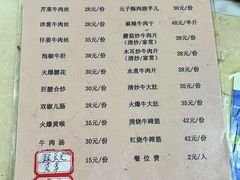 芹菜牛肉丝 28元/份
洋葱牛肉丝 28元/份
仔姜牛肉丝 35元/份
泡椒牛肝 30元/份
火爆腰花 35元/份
肝腰合炒 35元/份
双椒儿肠 28元/份
火爆黄喉 35元/份
牛肉汤 30元/份
15元/份
元子酥肉烧芋儿 30元/份
麻辣牛肉干 40元/半斤
蘑菇炒牛肉片 35元/份
(清炒/家常)
木耳炒牛肉片 35元/份
(清炒/家常)
水煮牛肉片 38元/份
清炒牛大肚 35元/份
火爆牛大肚 35元/份
清烧牛蹄筋 42元/份
红烧牛蹄筋 42元/份
餐位费 2元/人